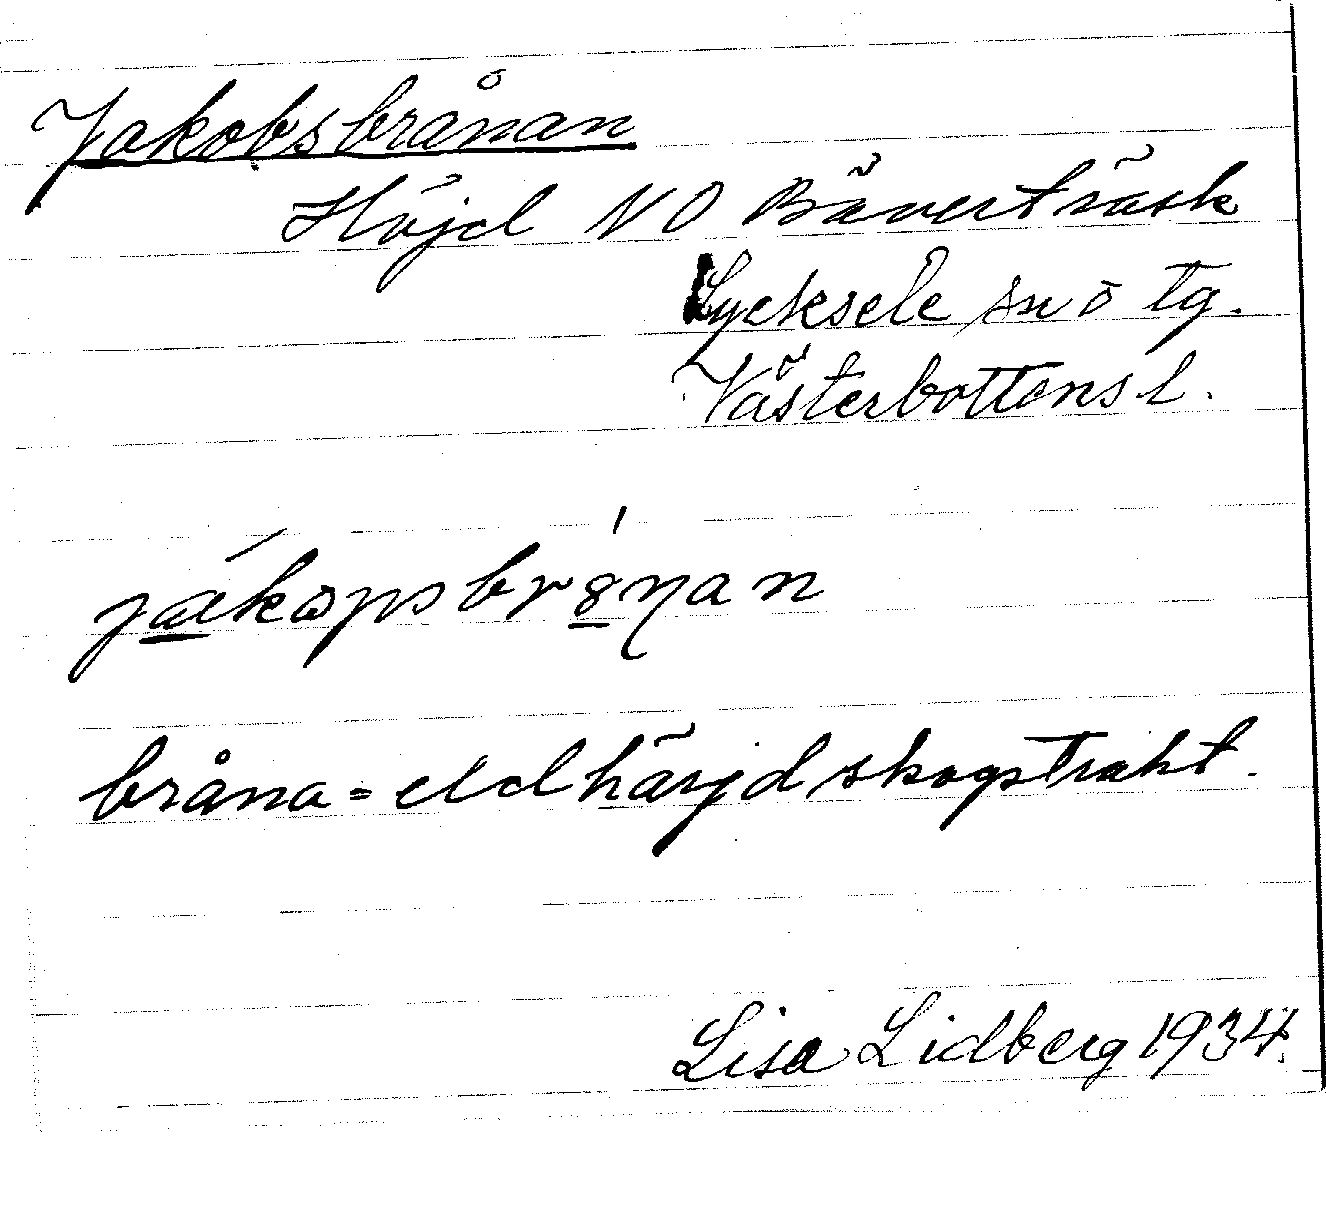 Jakobsbrånan
Höjd NO Bäverträsk
Lycksele sn o tg.
Västerbottens l.
bråna = eldhärjd skogstrakt.
Lisa Lidberg 1934.